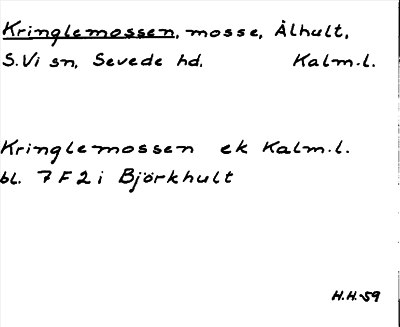 Kringlemossen, mosse, Ålhult,
S.Vi sn, Sevede hd. Kalm.l.
Kringlemossen ek Kalm.l.
bl. 7 F 2 i Björkhult
H.H.-59